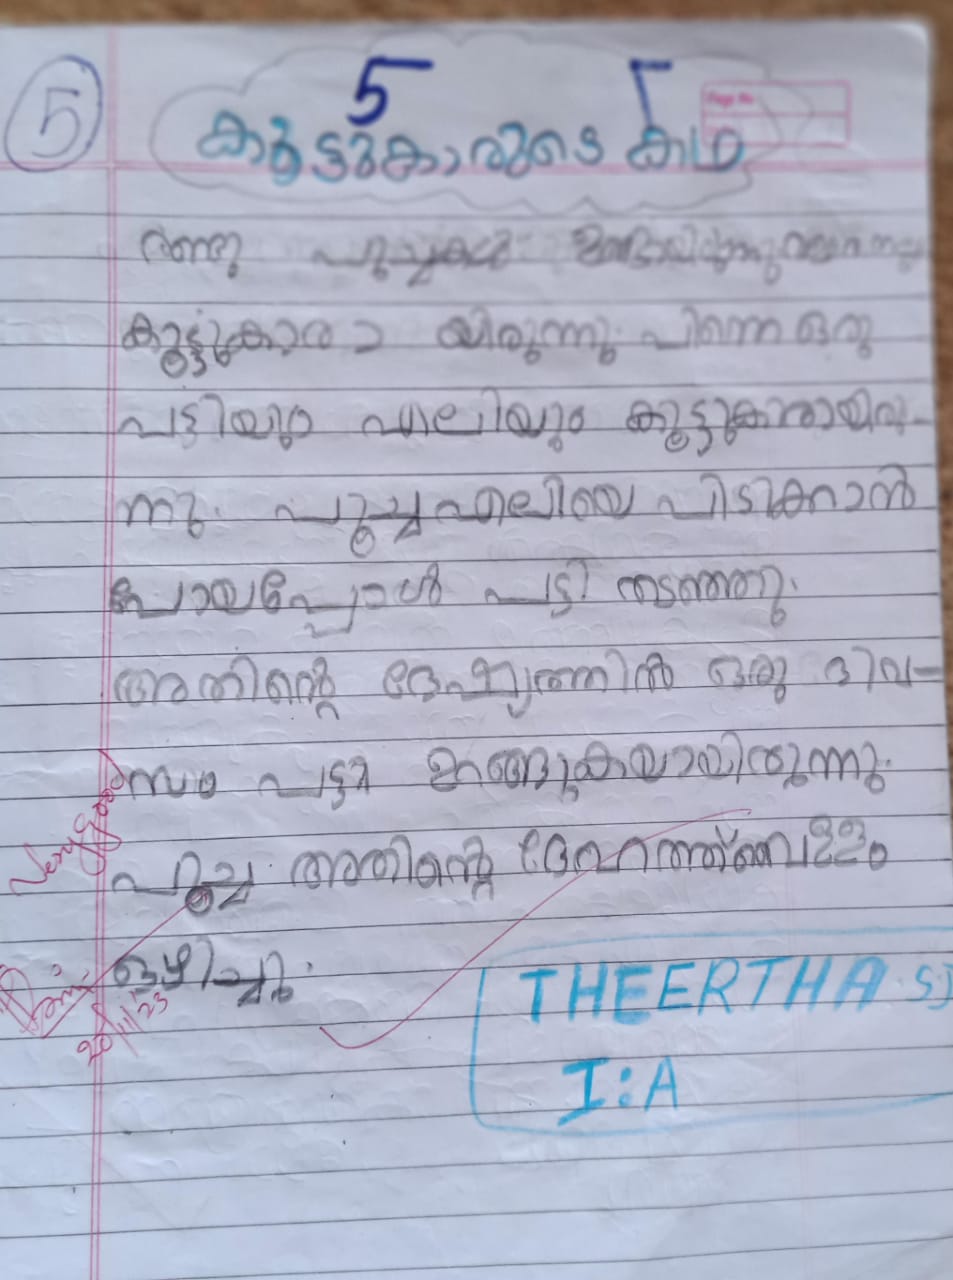 5 5
കൂട്ടുകാരുടെ കഥ
Page No.
രണ്ടു പൂച്ചകൾ ഉണ്ടായിരുന്നു
കൂട്ടുകാരാ യിരുന്നു. പിന്നെ ഒരു
പട്ടിയും എലിയും കൂട്ടുകരായിരു-
ന്നു. പൂച്ച എലിയെ പിടിക്കാൻ
പോയപ്പോൾ പട്ടി തടഞ്ഞു.
അതിന്റെ ദേഷ്യത്തിൽ ഒരു ദിവ-
സം പട്ടി ഉറങ്ങുകയായിരുന്നു.
പൂച്ച അതിന്റെ ദേഹത്ത് വെള്ളം
ഒഴിച്ചു.
Very good
20/11/23
THEERTHA. SJ
I:A